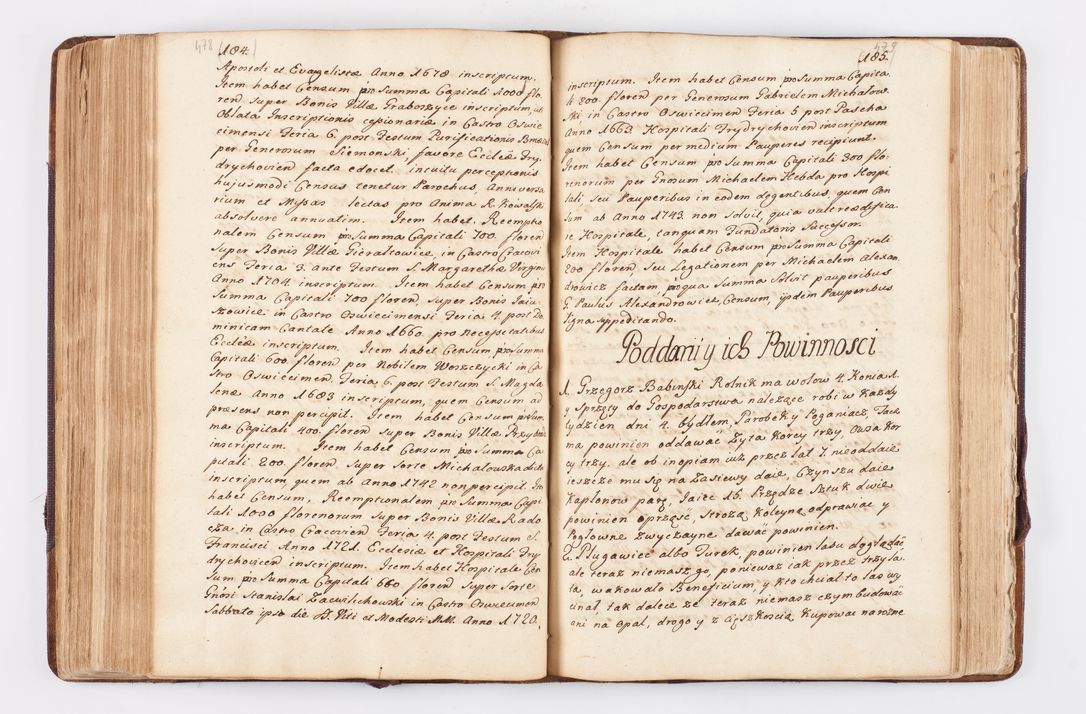 478 (184.)
Apostoli et Evangelistæ Anno 1678 inscriptum.
Item habet Censum pro Summa Capitali 1000 flo-
ren. Super Bonis Villæ Graboszyce inscriptum, ut
Oblata Inscriptionis cessionariæ in Castro Oswie-
cimensi Feria 6. post Festum Purificationis
per Generosum Siemonski favore Ecclæ Fry-
drychovien facta edocet. intuitu perceptionis
hujusmodi Census tenetur Parochus, Anniversa-
rium et Missas lectas pro Anima R. Kowalski
absolvere annuatim. Item habet. Reemptio-
nalem Censum pro Summa Capitali 700. floren
Super Bonis Villæ Gieraltowice, in Castro Cracovi-
ens Feria 3. ante Festum S. Margarethæ Virginis
Anno 1704 inscriptum. Item habet Censum pro
Summa Capitali 700 floren, super Bonis Jaiu-
szowice in Castro Oswiecimensi Feria 4. post Do-
minicam Cantate Anno 1660. pro necessitatibus
Ecclæ inscriptum. Item habet Censum pro Summa
Capitali 600. floren per Nobilem Woszczycki in Ca-
stro Oswiecimen. Feria 6. post Festum S. Magda-
lenæ Anno 1683 inscriptum, quem Censum ad
præsens non percipit. Item habet Censum pro Sum-
ma Capitali 400. floren Super Bonis Villæ
inscriptum. Item habet Censum pro Summa Ca-
pitali 200. floren Super Sorte Michalowska dicta
inscriptum, quem ab Anno 1742 non percipit. It
habet Censum, Reemptionalem pro Summa Capi-
tali 1000 florenorum Super Bonis Villæ Rado-
cza in Castro Cracovien Feria 4. post Festum S.
Francisci Anno 1721. Ecclesiæ et Hospitali Fry-
drychovien inscriptum. Item habet Hospitale Cen-
sum pro Summa Capitali 660 floren Super Sorte
Gnosi Stanislai Zacwilichowski in Castro Oswiecimen
Sabbato ipso die S. Viti et Modesti MM. Anno 1720.
479
(185.)
inscriptum. Item habet Censum pro Summa Capita-
li 200. floren per Generosum Gabrielem Michalow-
ski in Castro Oswiecimen Feria 5 post Pascha
Anno 1663. Hospitali Frydrychovien inscriptum
quem Censum per medium Pauperes recipiunt.
Item habet Censum pro Summa Capitali 300 flo-
renorum per Gnosum Michaelem Hebda pro Hospi-
tali, seu Pauperibus in eodem degentibus, quem Cen-
sum ab Anno 1743. non Solvit, quia vult reædifica-
re Hospitale, tanquam Fundatoris Successor.
Item Hospitale habet Censum pro Summa Capitali
200 floren, seu Legationem per Michaelem Alexan-
drowicz factam, pro qua Summa Solvit pauperibus
G. Paulus Alexandrowicz, Censum, ijsdem Pauperibus
ligna appeditando.
Poddani y ich Powinnosci
1. Grzegorz Babinski Rolnik ma wolow 4. Konia 1.
y Sprzęty do Gospodarstwa należące robi w każdy
tydzien dni 4. bydłem, Parobek y Poganiacz, Tacz-
ma powinien oddawać Zyta Korcy trzy, Owsa Kor-
cy trzy. ale ob inopiam iuż przez lat 7. nieoddaie
ieszcze mu się na Zasiewy daie, Czynszu daie
Kapłonow parę, Jaiec 15. Przędze Sztuk dwie
powinien oprząść, Stroża koleyne odprawiać y
Pogłowne zwyczayne dawać powinien.
2. Pługawiec albo Turek, powinien lasu doglądać
ale teraz niemasz go, ponieważ iak przez trzy la-
ta, wakowało Beneficium, y kto chciał to las wy-
cinał, tak dalece że teraz niemasz czym budować
ani na opał, drogo y z ciężkością Kupować na różne